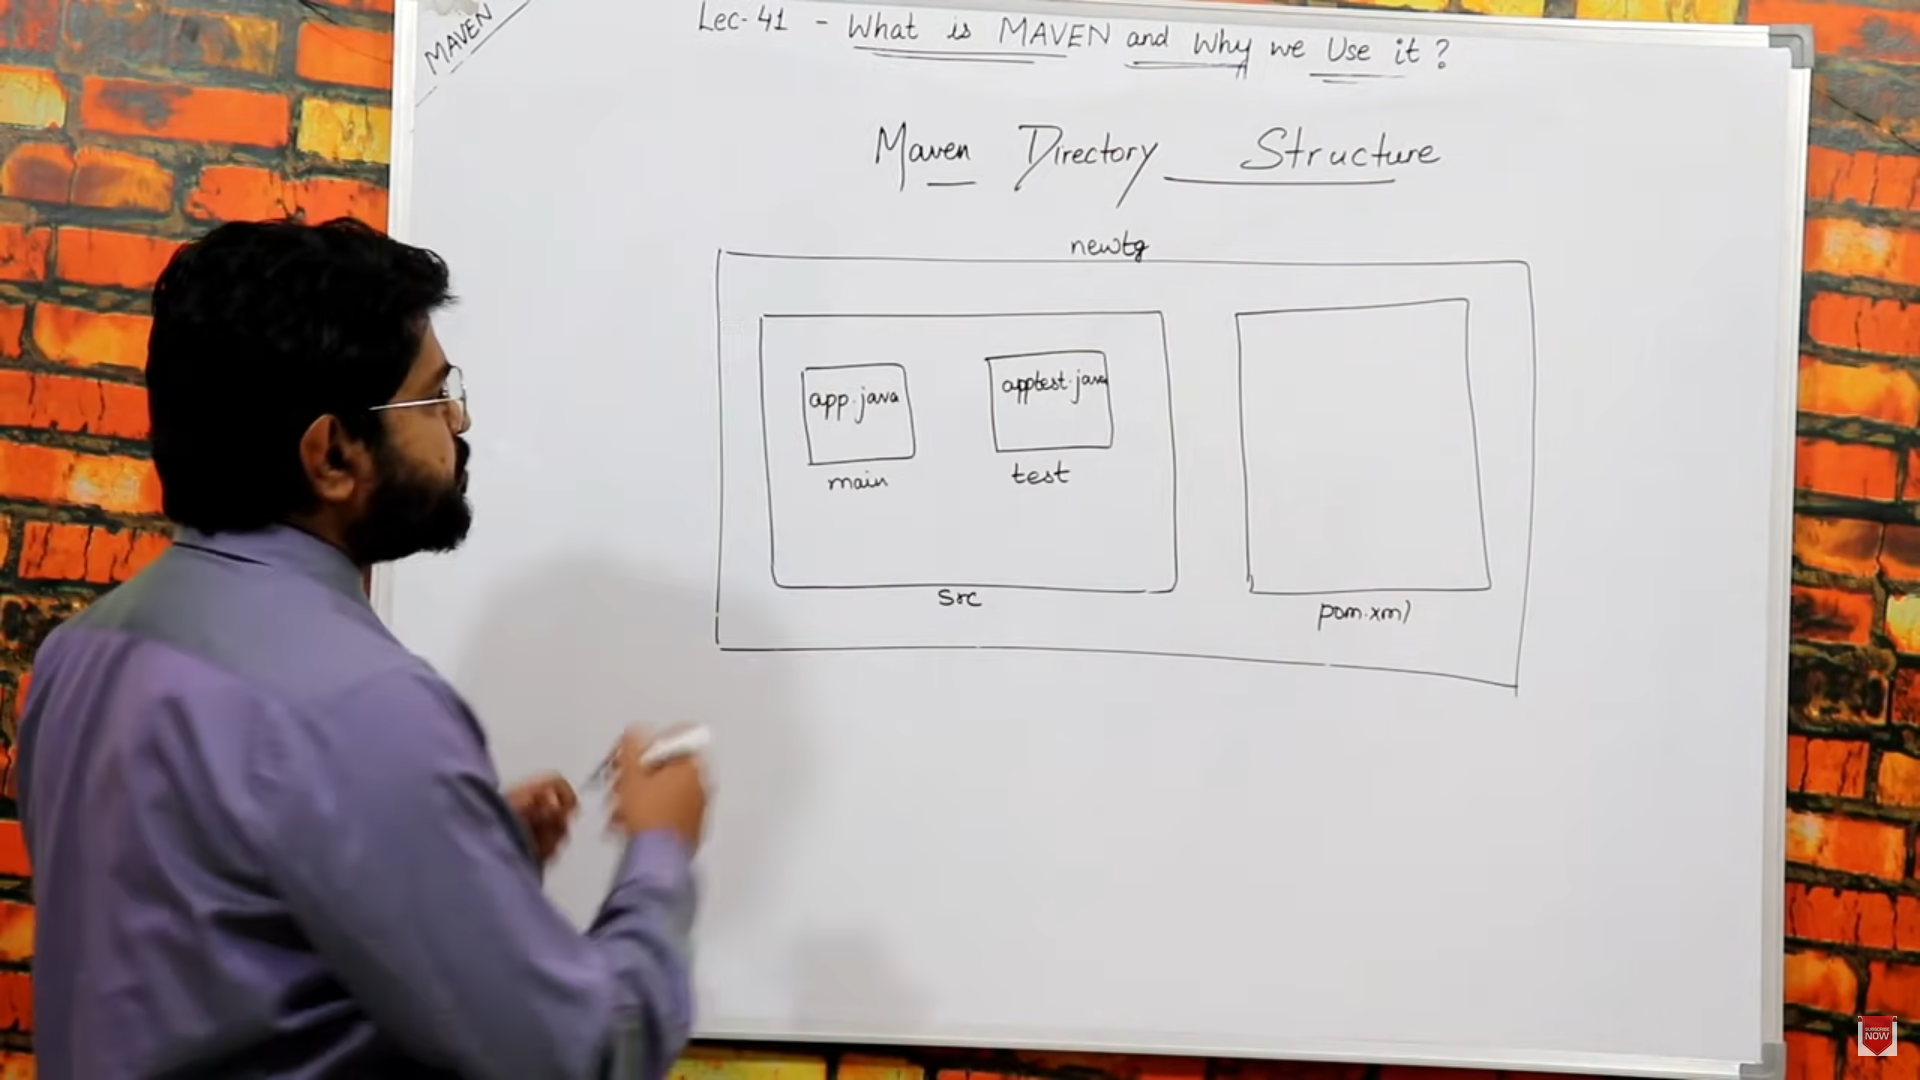 MAVEN
Lec-41 - What is MAVEN and Why we Use it?
Maven Directory Structure
newtg
app.java
apptest.java
main
test
src
pom.xml
SUBSCRIBE
NOW